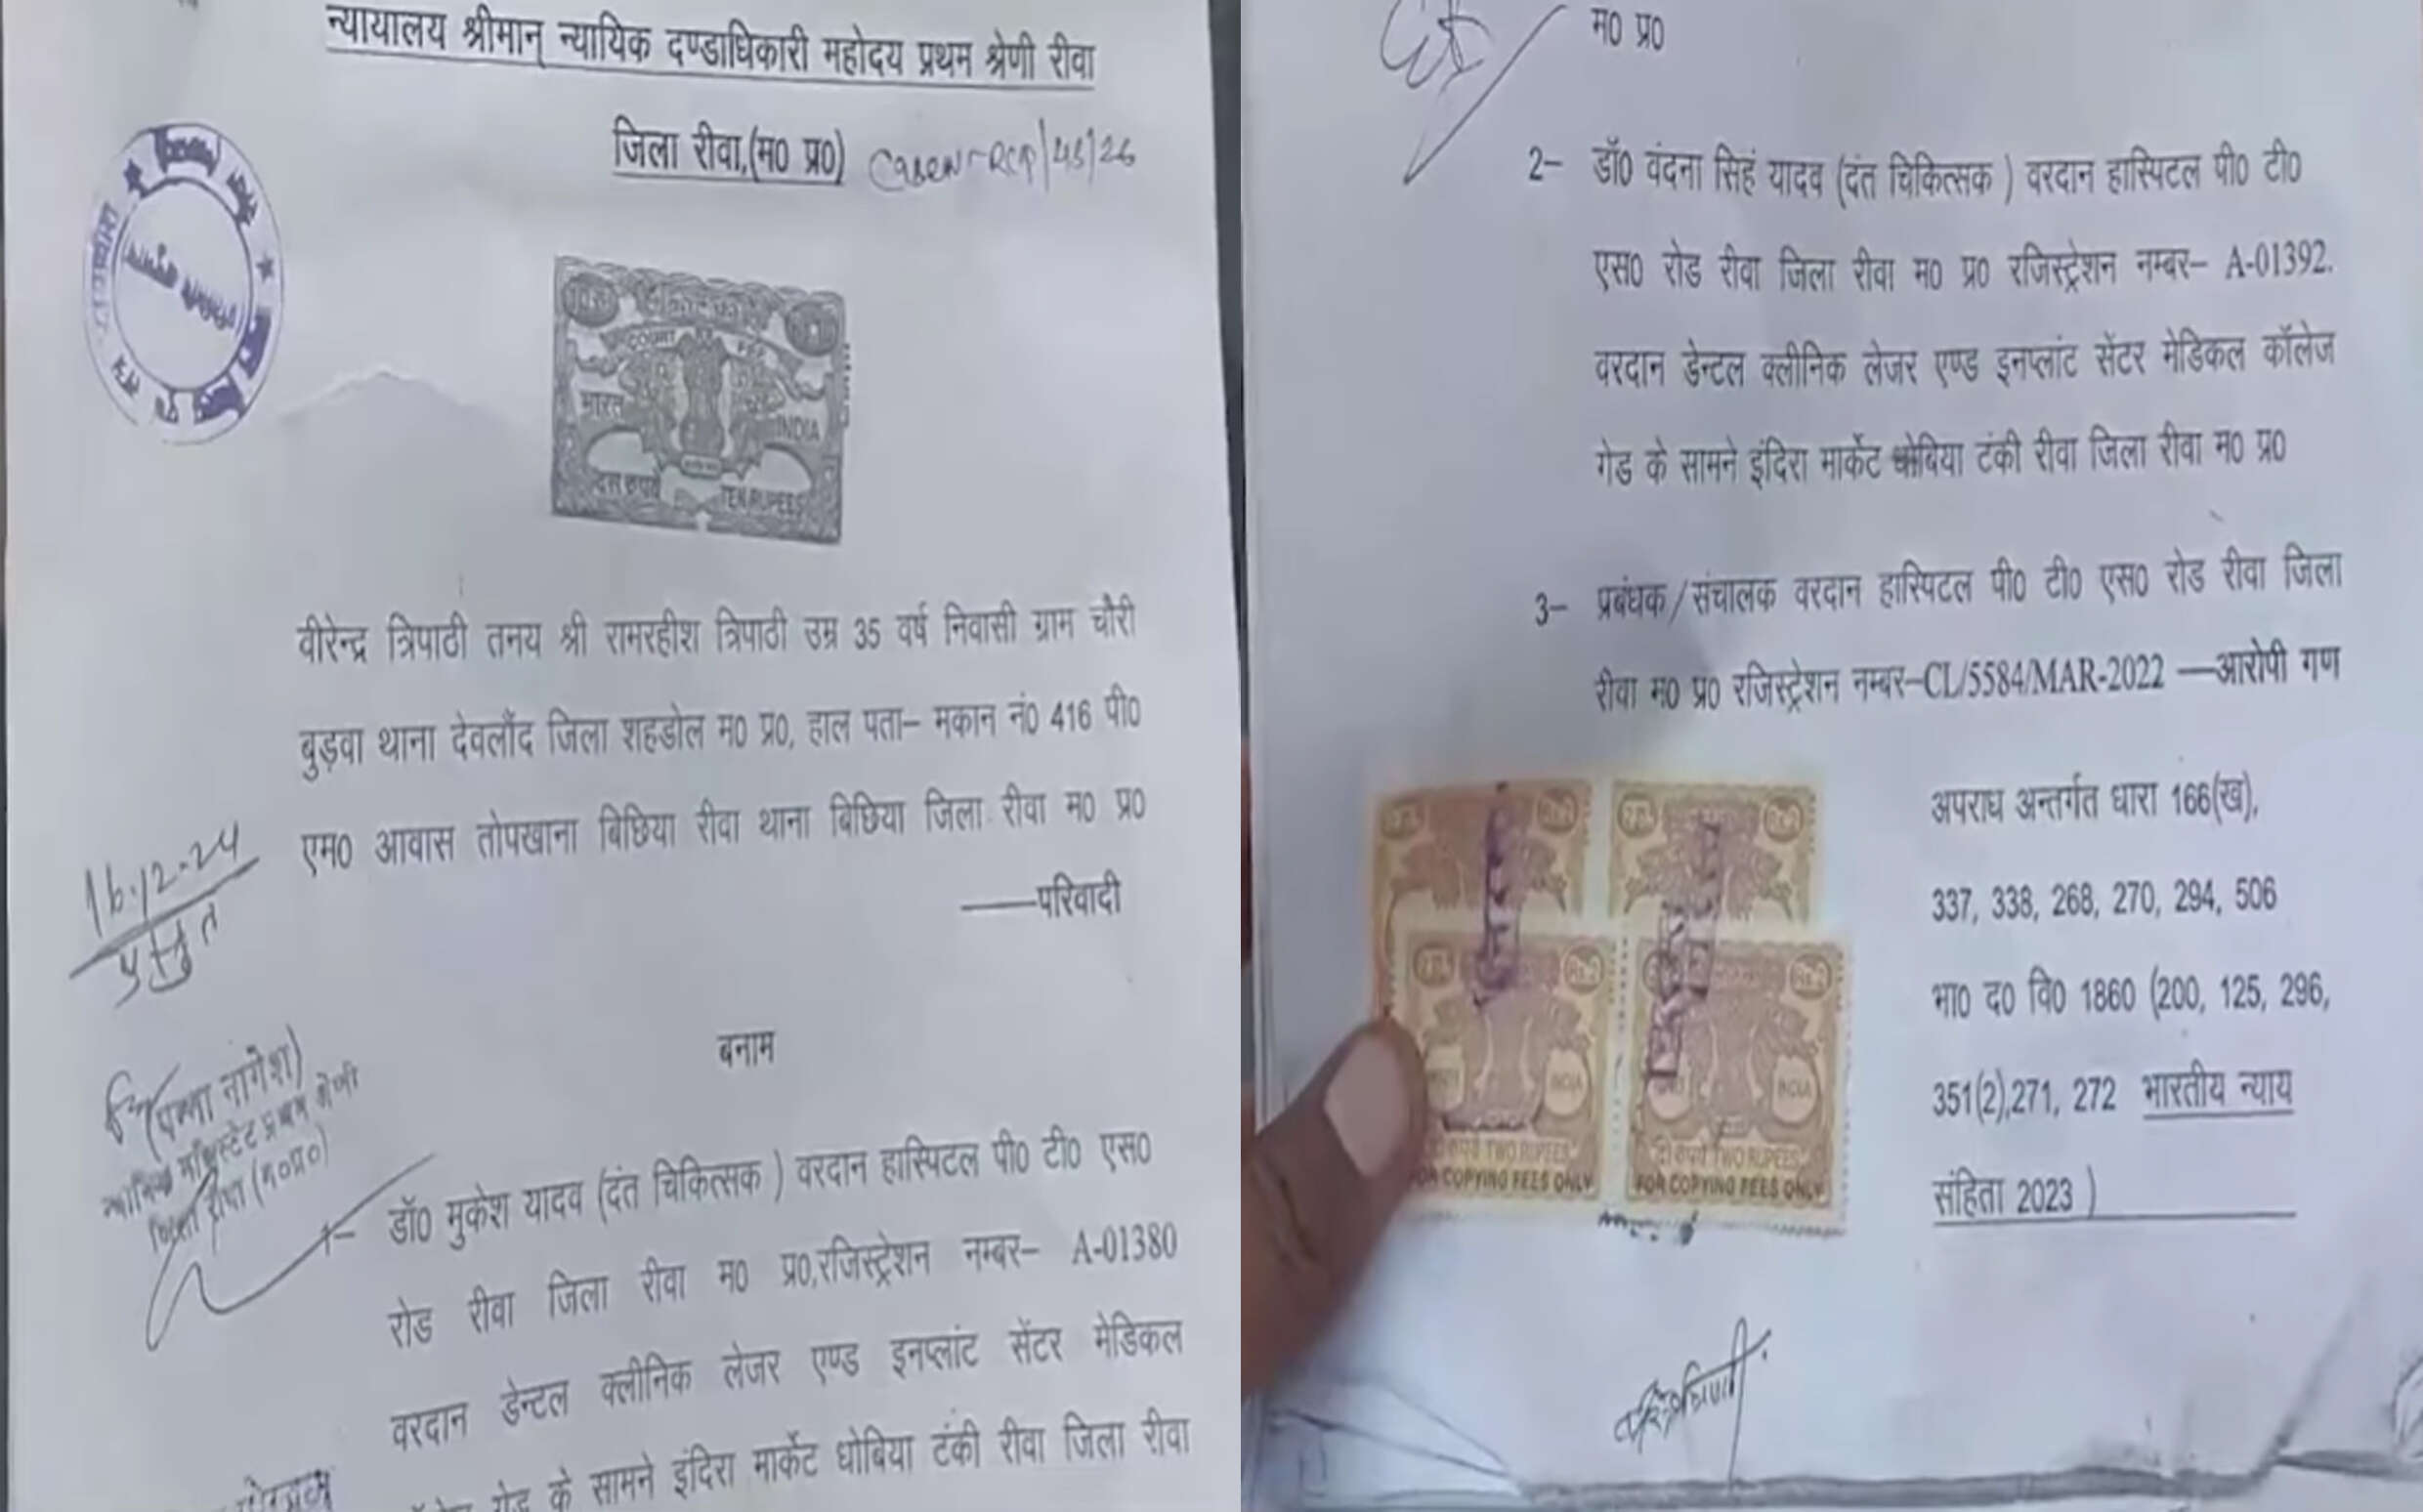 न्यायालय श्रीमान् न्यायिक दण्डाधिकारी महोदय प्रथम श्रेणी रीवा
जिला रीवा,(म0 प्र0)
COURT FEE
भारत INDIA
दस रुपये TEN RUPEES
वीरेन्द्र त्रिपाठी तनय श्री रामरहीश त्रिपाठी उम्र 35 वर्ष निवासी ग्राम चौरी
बुड़वा थाना देवलौंद जिला शहडोल म0 प्र0, हाल पता– मकान नं0 416 पी0
एम0 आवास तोपखाना बिछिया रीवा थाना बिछिया जिला रीवा म0 प्र0
——परिवादी
16.12.24
प्रस्तुत
बनाम
(पन्ना नागेश)
न्यायिक मजिस्ट्रेट प्रथम श्रेणी
जिला रीवा (म०प्र०)
1– डॉ0 मुकेश यादव (दंत चिकित्सक ) वरदान हास्पिटल पी0 टी0 एस0
रोड रीवा जिला रीवा म0 प्र0,रजिस्ट्रेशन नम्बर– A-01380
वरदान डेन्टल क्लीनिक लेजर एण्ड इनप्लांट सेंटर मेडिकल
गेड के सामने इंदिरा मार्केट धोबिया टंकी रीवा जिला रीवा
म0 प्र0
2– डॉ0 वंदना सिहं यादव (दंत चिकित्सक ) वरदान हास्पिटल पी0 टी0
एस0 रोड रीवा जिला रीवा म0 प्र0 रजिस्ट्रेशन नम्बर– A-01392.
वरदान डेन्टल क्लीनिक लेजर एण्ड इनप्लांट सेंटर मेडिकल कॉलेज
गेड के सामने इंदिरा मार्केट धोबिया टंकी रीवा जिला रीवा म0 प्र0
3– प्रबंधक/संचालक वरदान हास्पिटल पी0 टी0 एस0 रोड रीवा जिला
रीवा म0 प्र0 रजिस्ट्रेशन नम्बर–CL/5584/MAR-2022 —आरोपी गण
अपराध अन्तर्गत धारा 166(ख),
337, 338, 268, 270, 294, 506
भा0 द0 वि0 1860 (200, 125, 296,
351(2),271, 272 भारतीय न्याय
संहिता 2023 )
INDIA INDIA
दो रुपये TWO RUPEES दो रुपये TWO RUPEES
FOR COPYING FEES ONLY FOR COPYING FEES ONLY